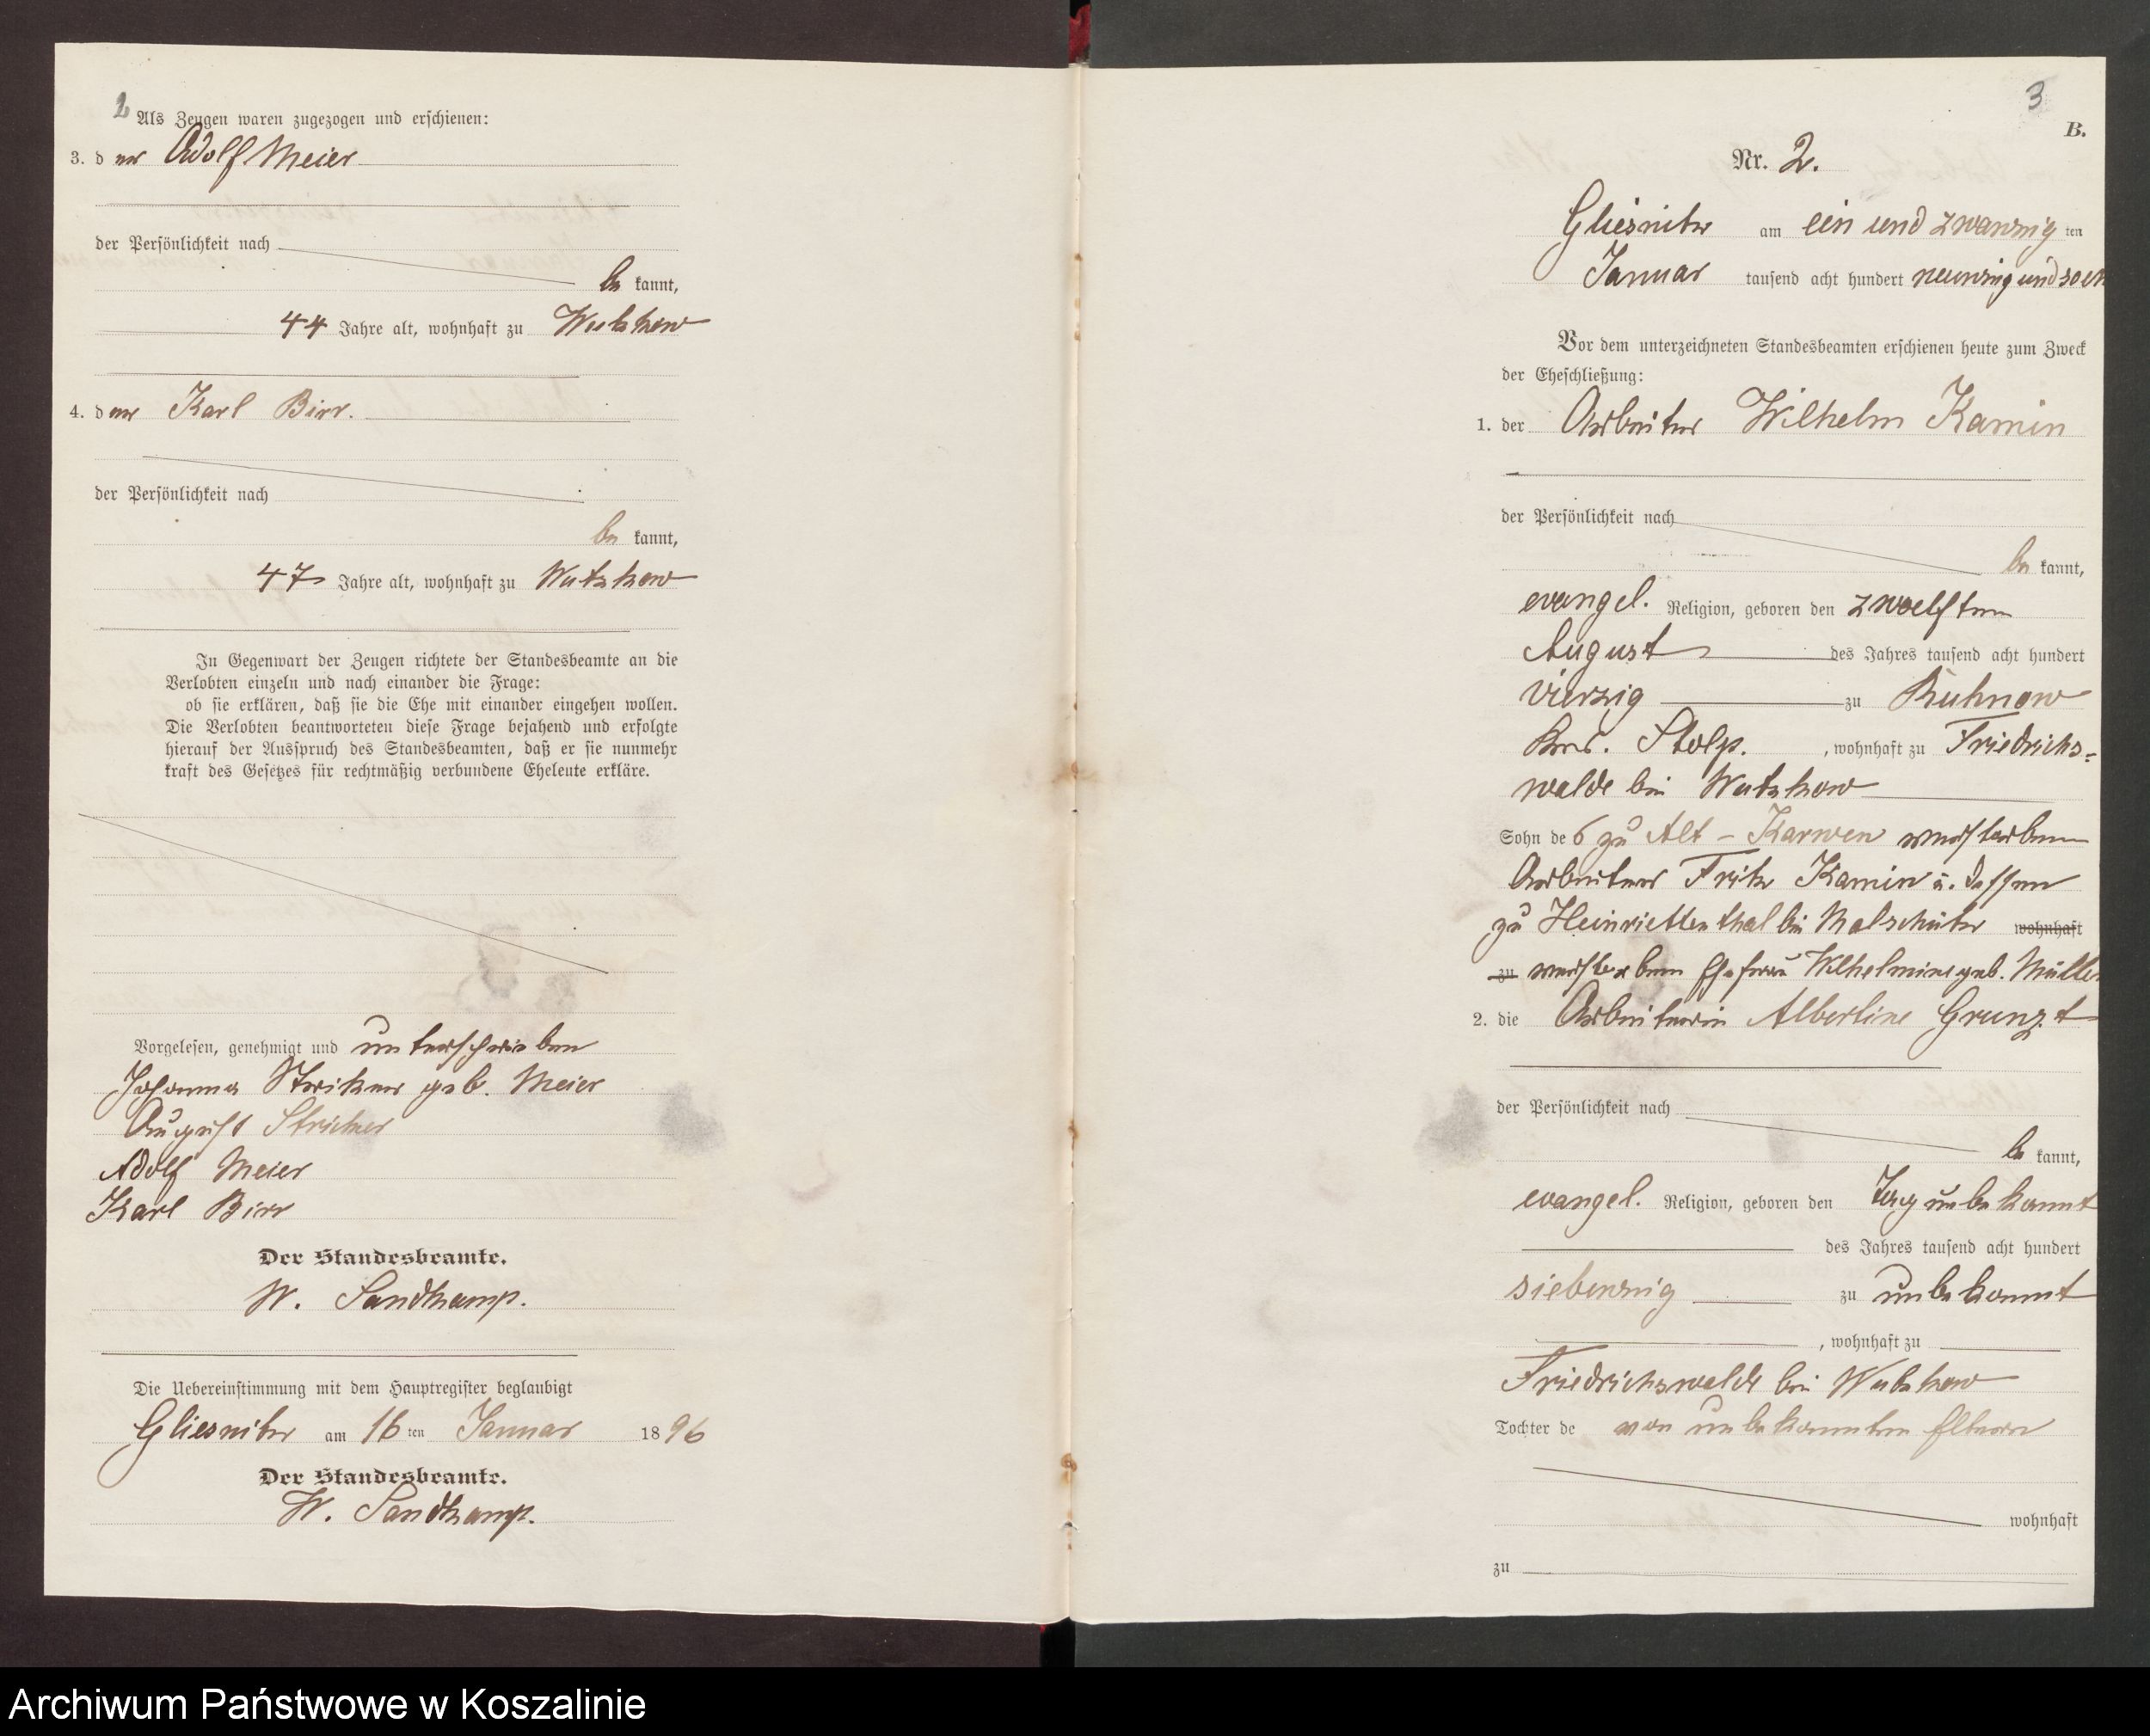 2
Als Zeugen waren zugezogen und erschienen:
3. der Adolf Meier
der Persönlichkeit nach
be kannt,
44 Jahre alt, wohnhaft zu Wutzkow
4. der Karl Birr.
der Persönlichkeit nach
be kannt,
47 Jahre alt, wohnhaft zu Wutzkow
In Gegenwart der Zeugen richtete der Standesbeamte an die
Verlobten einzeln und nach einander die Frage:
ob sie erklären, daß sie die Ehe mit einander eingehen wollen.
Die Verlobten beantworteten diese Frage bejahend und erfolgte
hierauf der Ausspruch des Standesbeamten, daß er sie nunmehr
kraft des Gesetzes für rechtmäßig verbundene Eheleute erkläre.
Vorgelesen, genehmigt und unterschrieben
Johanna Striker geb. Meier
August Stricker
Adolf Meier
Karl Birr
Der Standesbeamte.
W. Sandkamp.
Die Uebereinstimmung mit dem Hauptregister beglaubigt
Gliesnitz am 16 ten Januar 1896
Der Standesbeamte.
W. Sandkamp.
3
B.
Nr. 2.
Gliesnitz am ein und zwanzig ten
Januar tausend acht hundert neunzig und sech
Vor dem unterzeichneten Standesbeamten erschienen heute zum Zweck
der Eheschließung:
1. der Arbeiter Wilhelm Kamin
der Persönlichkeit nach
be kannt,
evangel. Religion, geboren den zwoelften
August des Jahres tausend acht hundert
vierzig zu Kuhnow
Krs. Stolp. , wohnhaft zu Friedrichs-
walde bei Wutzkow
Sohn des zu Alt - Karwen verstorbenen
Arbeiters Fritz Kamin u. dessen
zu Heinriettenthal bei Malschütz wohnhaft
zu verstorbenen Ehefrau Wilhelmine geb. Müller
2. die Arbeiterin Albertine Grunzt
der Persönlichkeit nach
be kannt,
evangel. Religion, geboren den Tag unbekannt
des Jahres tausend acht hundert
siebenzig zu unbekannt
, wohnhaft zu
Friedrichswalde bei Wutzkow
Tochter de von unbekannten Eltern
wohnhaft
zu
Archiwum Państwowe w Koszalinie